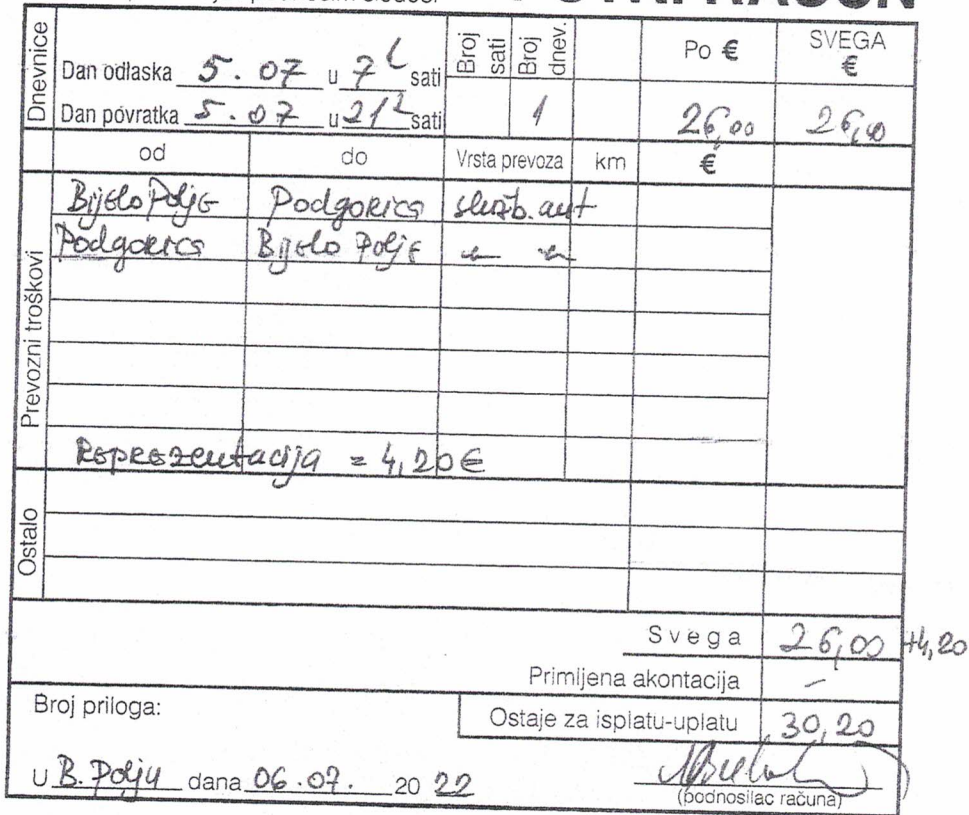 Dnevnice
Dan odlaska 5.07 u 7 sati
Dan povratka 5.07 u 21 sati
Broj sati
Broj dnev.
Po €
SVEGA €
1 26,00 26,00
od do Vrsta prevoza km €
Prevozni troškovi
Bijelo Polje Podgorica služb. aut
Podgorica Bijelo Polje
Reprezentacija = 4,20€
Ostalo
Svega 26,00 +4,20
Primljena akontacija –
Broj priloga:
Ostaje za isplatu-uplatu 30,20
U B. Polju dana 06.07. 20 22
(podnosilac računa)